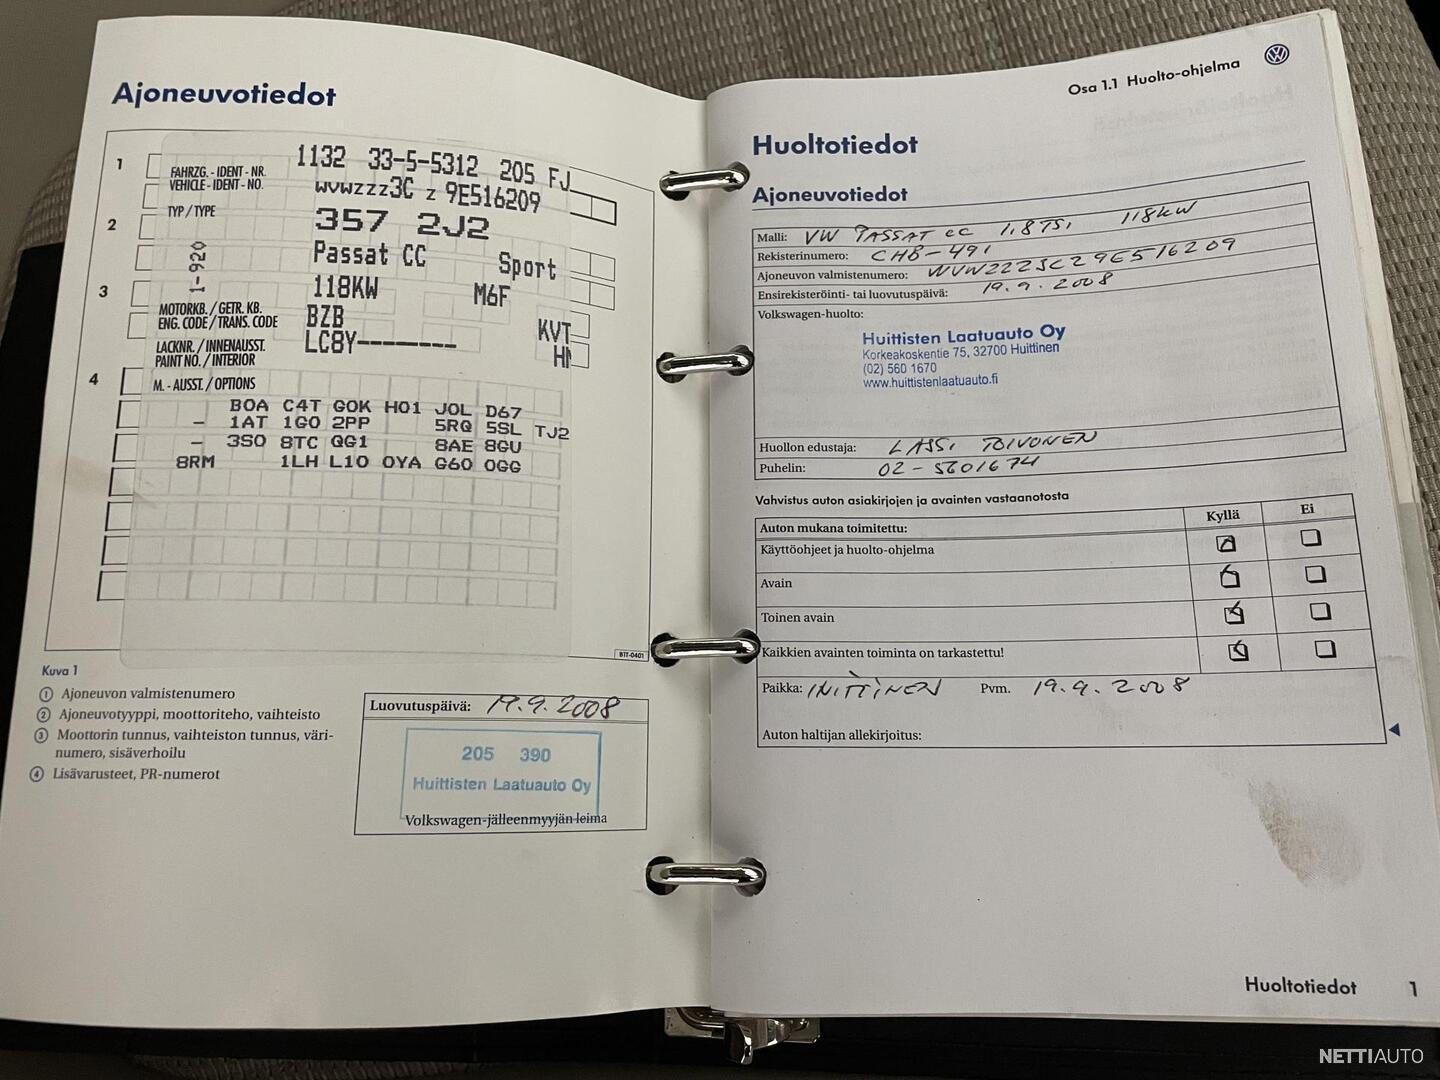 Ajoneuvotiedot
1
1132 33-5-5312 205 FJ
FAHRZG. - IDENT - NR.
VEHICLE - IDENT - NO.
WVWZZZ3C Z 9E516209
2
TYP / TYPE
357 2J2
1-920
Passat CC Sport
3
118KW M6F
MOTORKB. / GETR. KB.
ENG. CODE / TRANS. CODE
BZB KVT
LACKNR. / INNENAUSST.
PAINT NO. / INTERIOR
LC8Y--------
4
M. - AUSST. / OPTIONS
BOA C4T GOK HO1 JOL D67
- 1AT 1GO 2PP 5RQ 5SL TJ2
- 3SO 8TC QG1 8AE 8GU
8RM 1LH L10 OYA G60 OGG
B1T-0401
Kuva 1
1 Ajoneuvon valmistenumero
2 Ajoneuvotyyppi, moottoriteho, vaihteisto
3 Moottorin tunnus, vaihteiston tunnus, väri-
numero, sisäverhoilu
4 Lisävarusteet, PR-numerot
Luovutuspäivä: 19.9.2008
205 390
Huittisten Laatuauto Oy
Volkswagen-jälleenmyyjän leima
Osa 1.1 Huolto-ohjelma
Huoltotiedot
Ajoneuvotiedot
Malli: VW PASSAT CC 1,8TSI 118KW
Rekisterinumero: CHB-491
Ajoneuvon valmistenumero: WVWZZZ3CZ9E516209
Ensirekisteröinti- tai luovutuspäivä: 19.9.2008
Volkswagen-huolto:
Huittisten Laatuauto Oy
Korkeakoskentie 75, 32700 Huittinen
(02) 560 1670
www.huittistenlaatuauto.fi
Huollon edustaja: LASSI TOIVONEN
Puhelin: 02-5601674
Vahvistus auton asiakirjojen ja avainten vastaanotosta
Auton mukana toimitettu: Kyllä Ei
Käyttöohjeet ja huolto-ohjelma
Avain
Toinen avain
Kaikkien avainten toiminta on tarkastettu!
Paikka: HUITTINEN Pvm. 19.9.2008
Auton haltijan allekirjoitus:
Huoltotiedot 1
NETTIAUTO